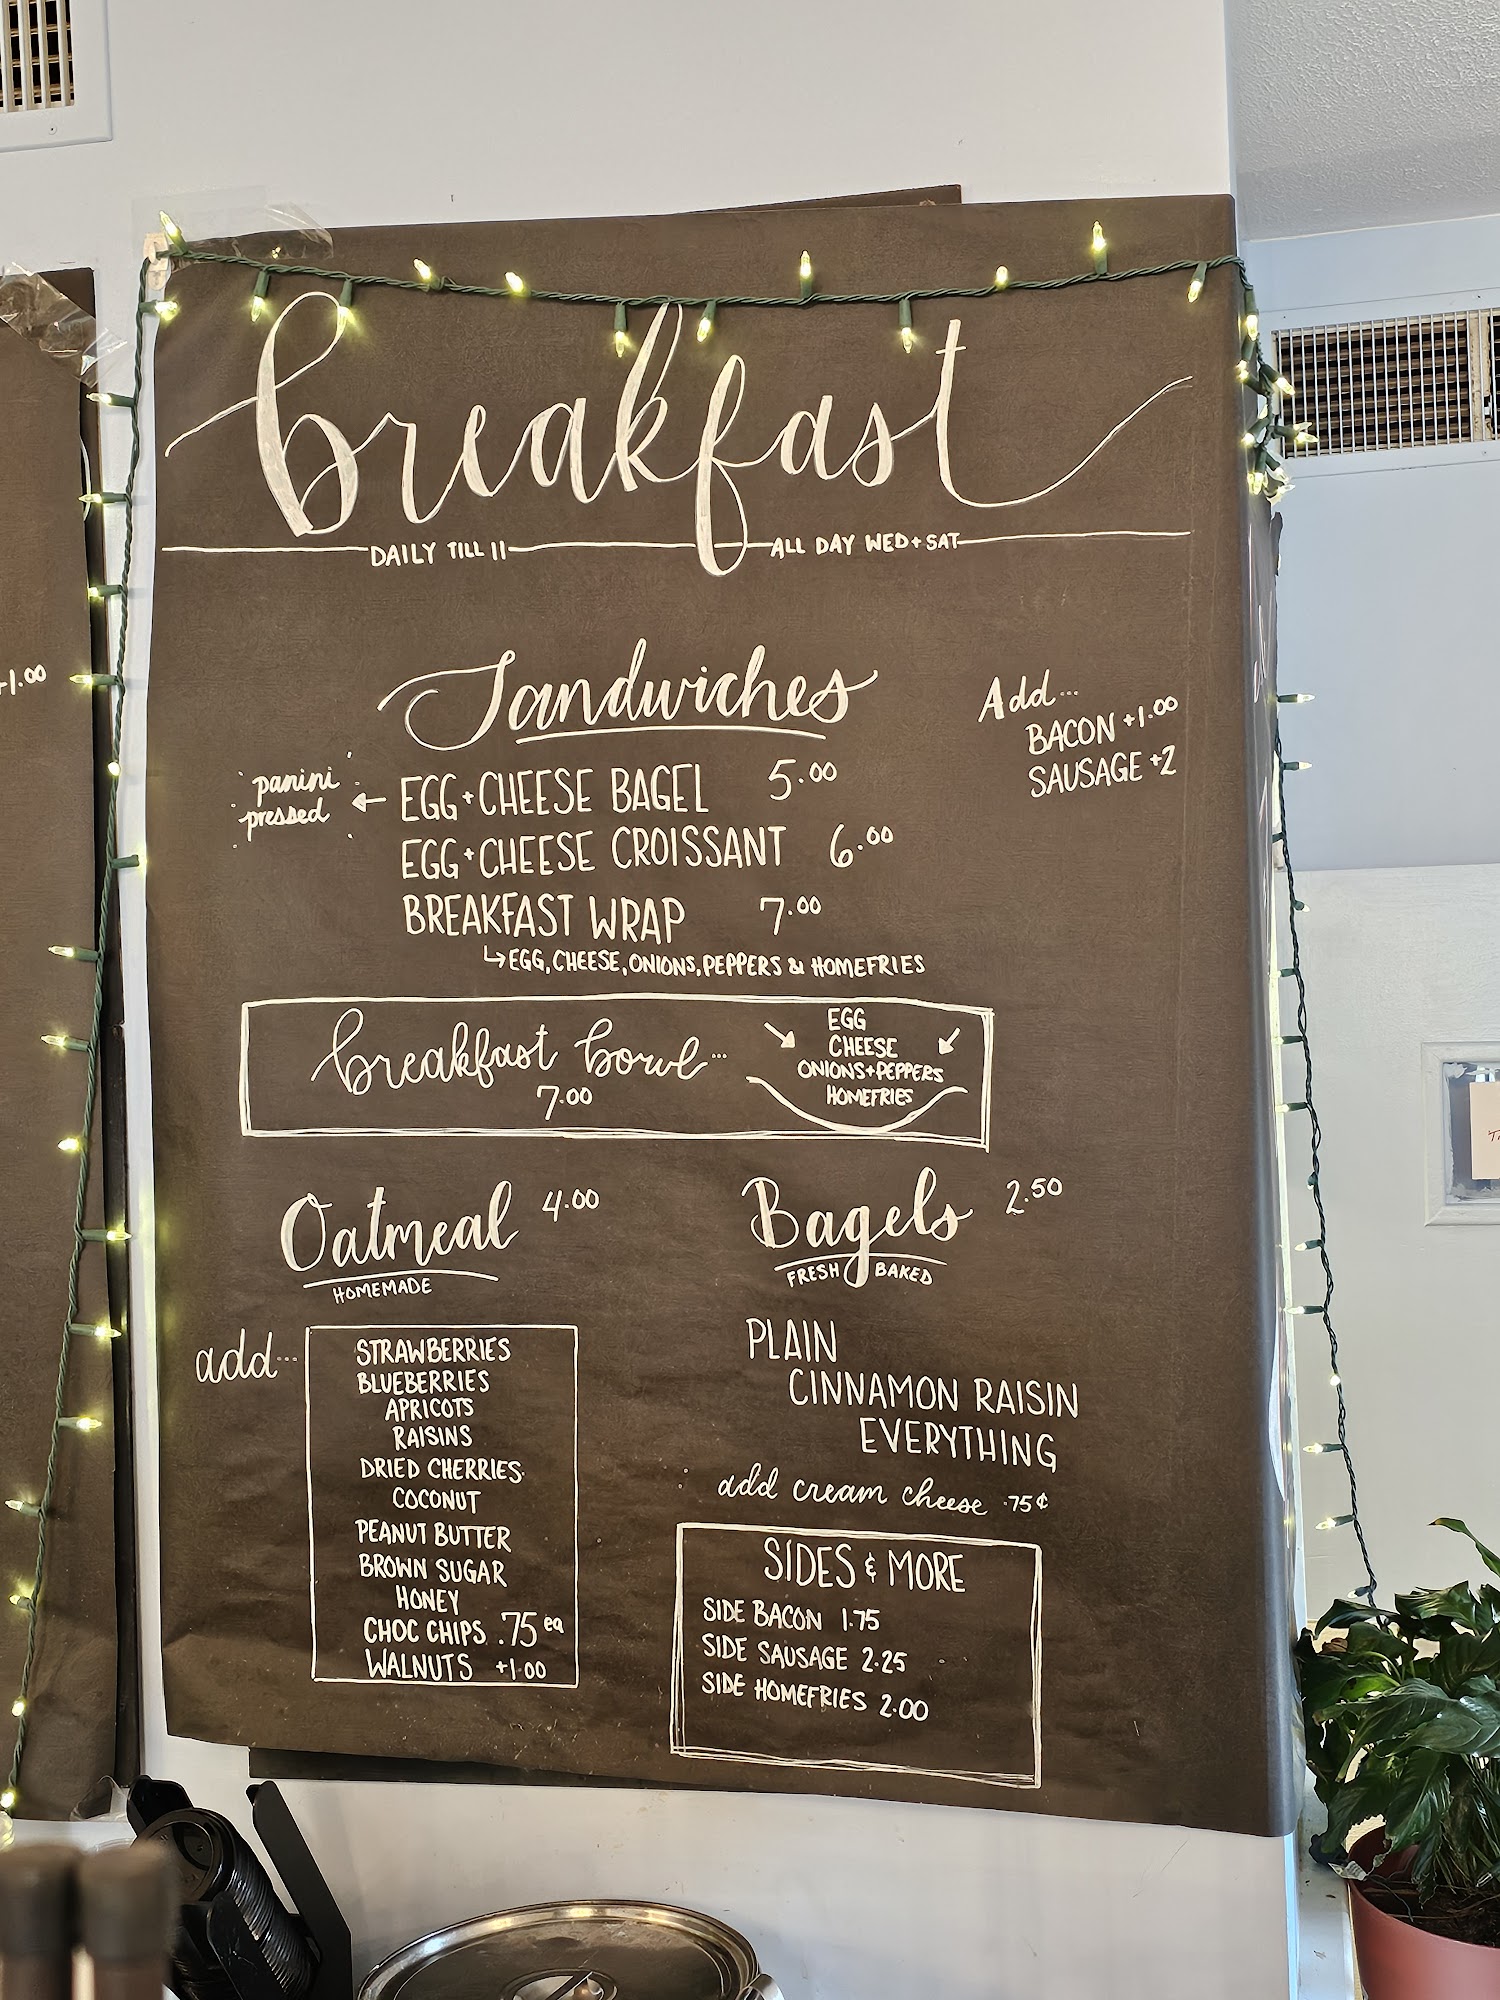 breakfast
DAILY TILL 11
ALL DAY WED + SAT
+1.00
Sandwiches
Add...
BACON +1.00
SAUSAGE +2
panini
pressed
EGG + CHEESE BAGEL 5.00
EGG + CHEESE CROISSANT 6.00
BREAKFAST WRAP 7.00
EGG, CHEESE, ONIONS, PEPPERS & HOMEFRIES
breakfast bowl...
7.00
EGG
CHEESE
ONIONS + PEPPERS
HOMEFRIES
Oatmeal 4.00
HOMEMADE
add...
STRAWBERRIES
BLUEBERRIES
APRICOTS
RAISINS
DRIED CHERRIES
COCONUT
PEANUT BUTTER
BROWN SUGAR
HONEY
CHOC CHIPS .75 ea
WALNUTS +1.00
Bagels 2.50
FRESH BAKED
PLAIN
CINNAMON RAISIN
EVERYTHING
add cream cheese .75¢
SIDES & MORE
SIDE BACON 1.75
SIDE SAUSAGE 2.25
SIDE HOMEFRIES 2.00